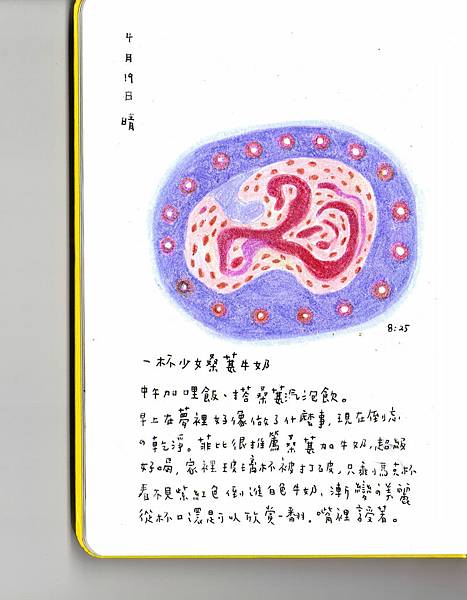 4月19日 晴
8:25
一杯少女桑葚牛奶
中午加哩飯、搭桑葚汽泡飲。
早上在夢裡好像做了什麼事,現在倒忘
的乾淨。菲比很推薦桑葚加牛奶,超級
好喝,家裡玻璃杯被打破,只剩馬克杯
看不見紫紅色倒進白色牛奶、漸變的美麗
從杯口還是可以欣賞一翻.嘴裡享受著。